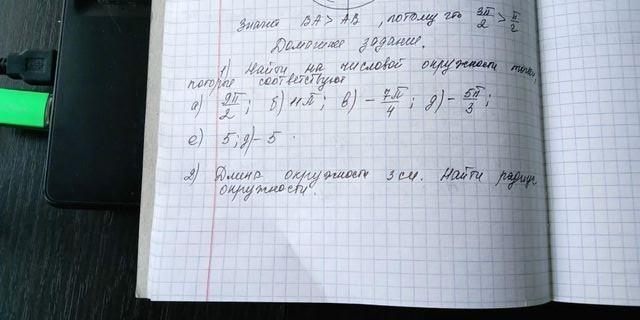 Значит BA > AB, потому что 3π/2 > π/2
Домашнее задание.
1) Найти на числовой окружности точки,
которые соответствуют
а) 9π/2; б) 11π; в) -7π/4; д) -5π/3;
е) 5; д) -5.
2) Длина окружности 3 см. Найти радиус
окружности.